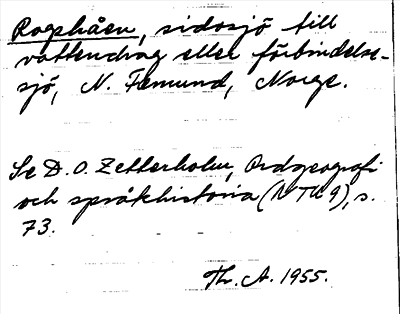 Roghåen, sidosjö till
vattendrag eller förbindelse-
sjö, N. Femund, Norge.
Se D. O. Zetterholm, Ordgeografi
och språkhistoria (NTU 9), s.
73.
Th. A. 1955.